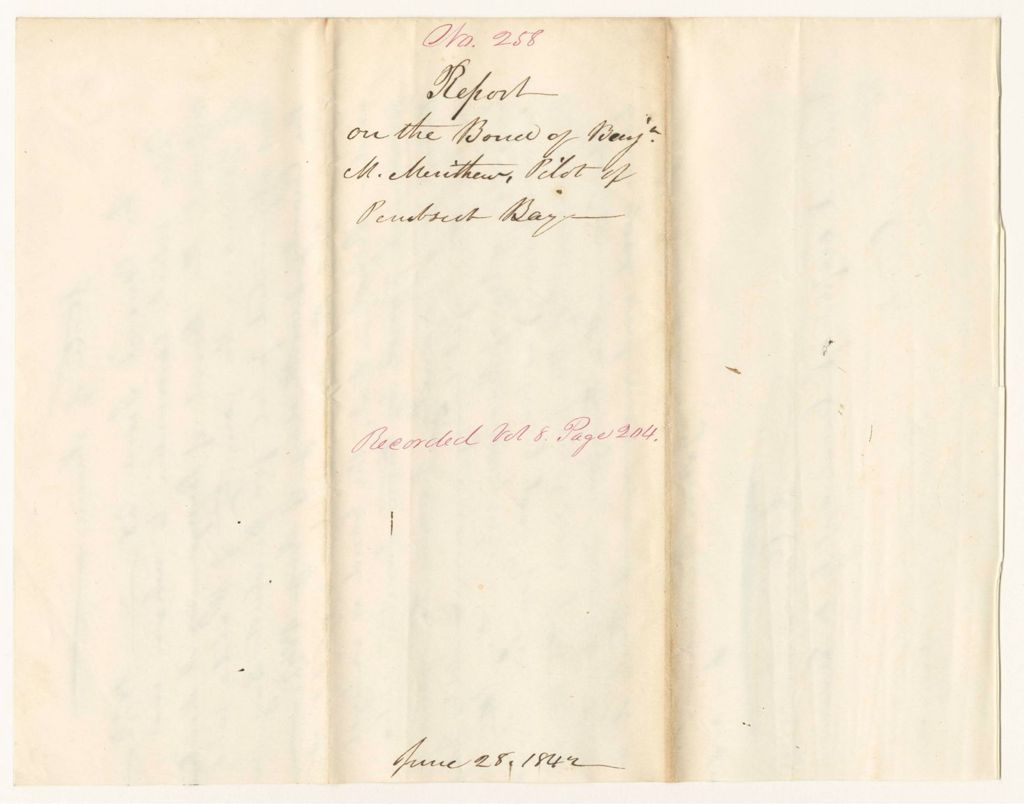 No. 258
Report
on the Bond of Benjn.
M. Merithew, Pilot of
Penobscot Bay
Recorded Vol 8. Page 204.
June 28, 1842